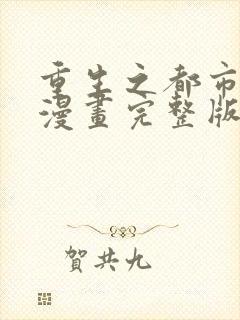 重生之都市
漫畫完整版
賀共九